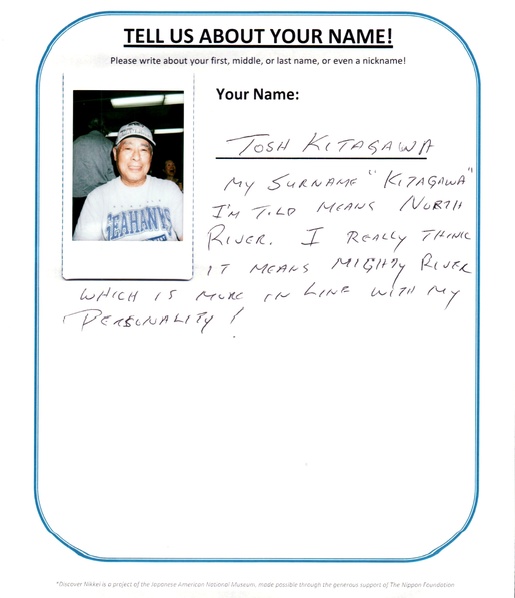 TELL US ABOUT YOUR NAME!
Please write about your first, middle, or last name, or even a nickname!
Your Name:
TOSH KITAGAWA
MY SURNAME "KITAGAWA"
I'M TOLD MEANS NORTH
RIVER. I REALLY THINK
IT MEANS MIGHTY RIVER
WHICH IS MORE IN LINE WITH MY
PERSONALITY!
SEAHAWKS
*Discover Nikkei is a project of the Japanese American National Museum, made possible through the generous support of The Nippon Foundation